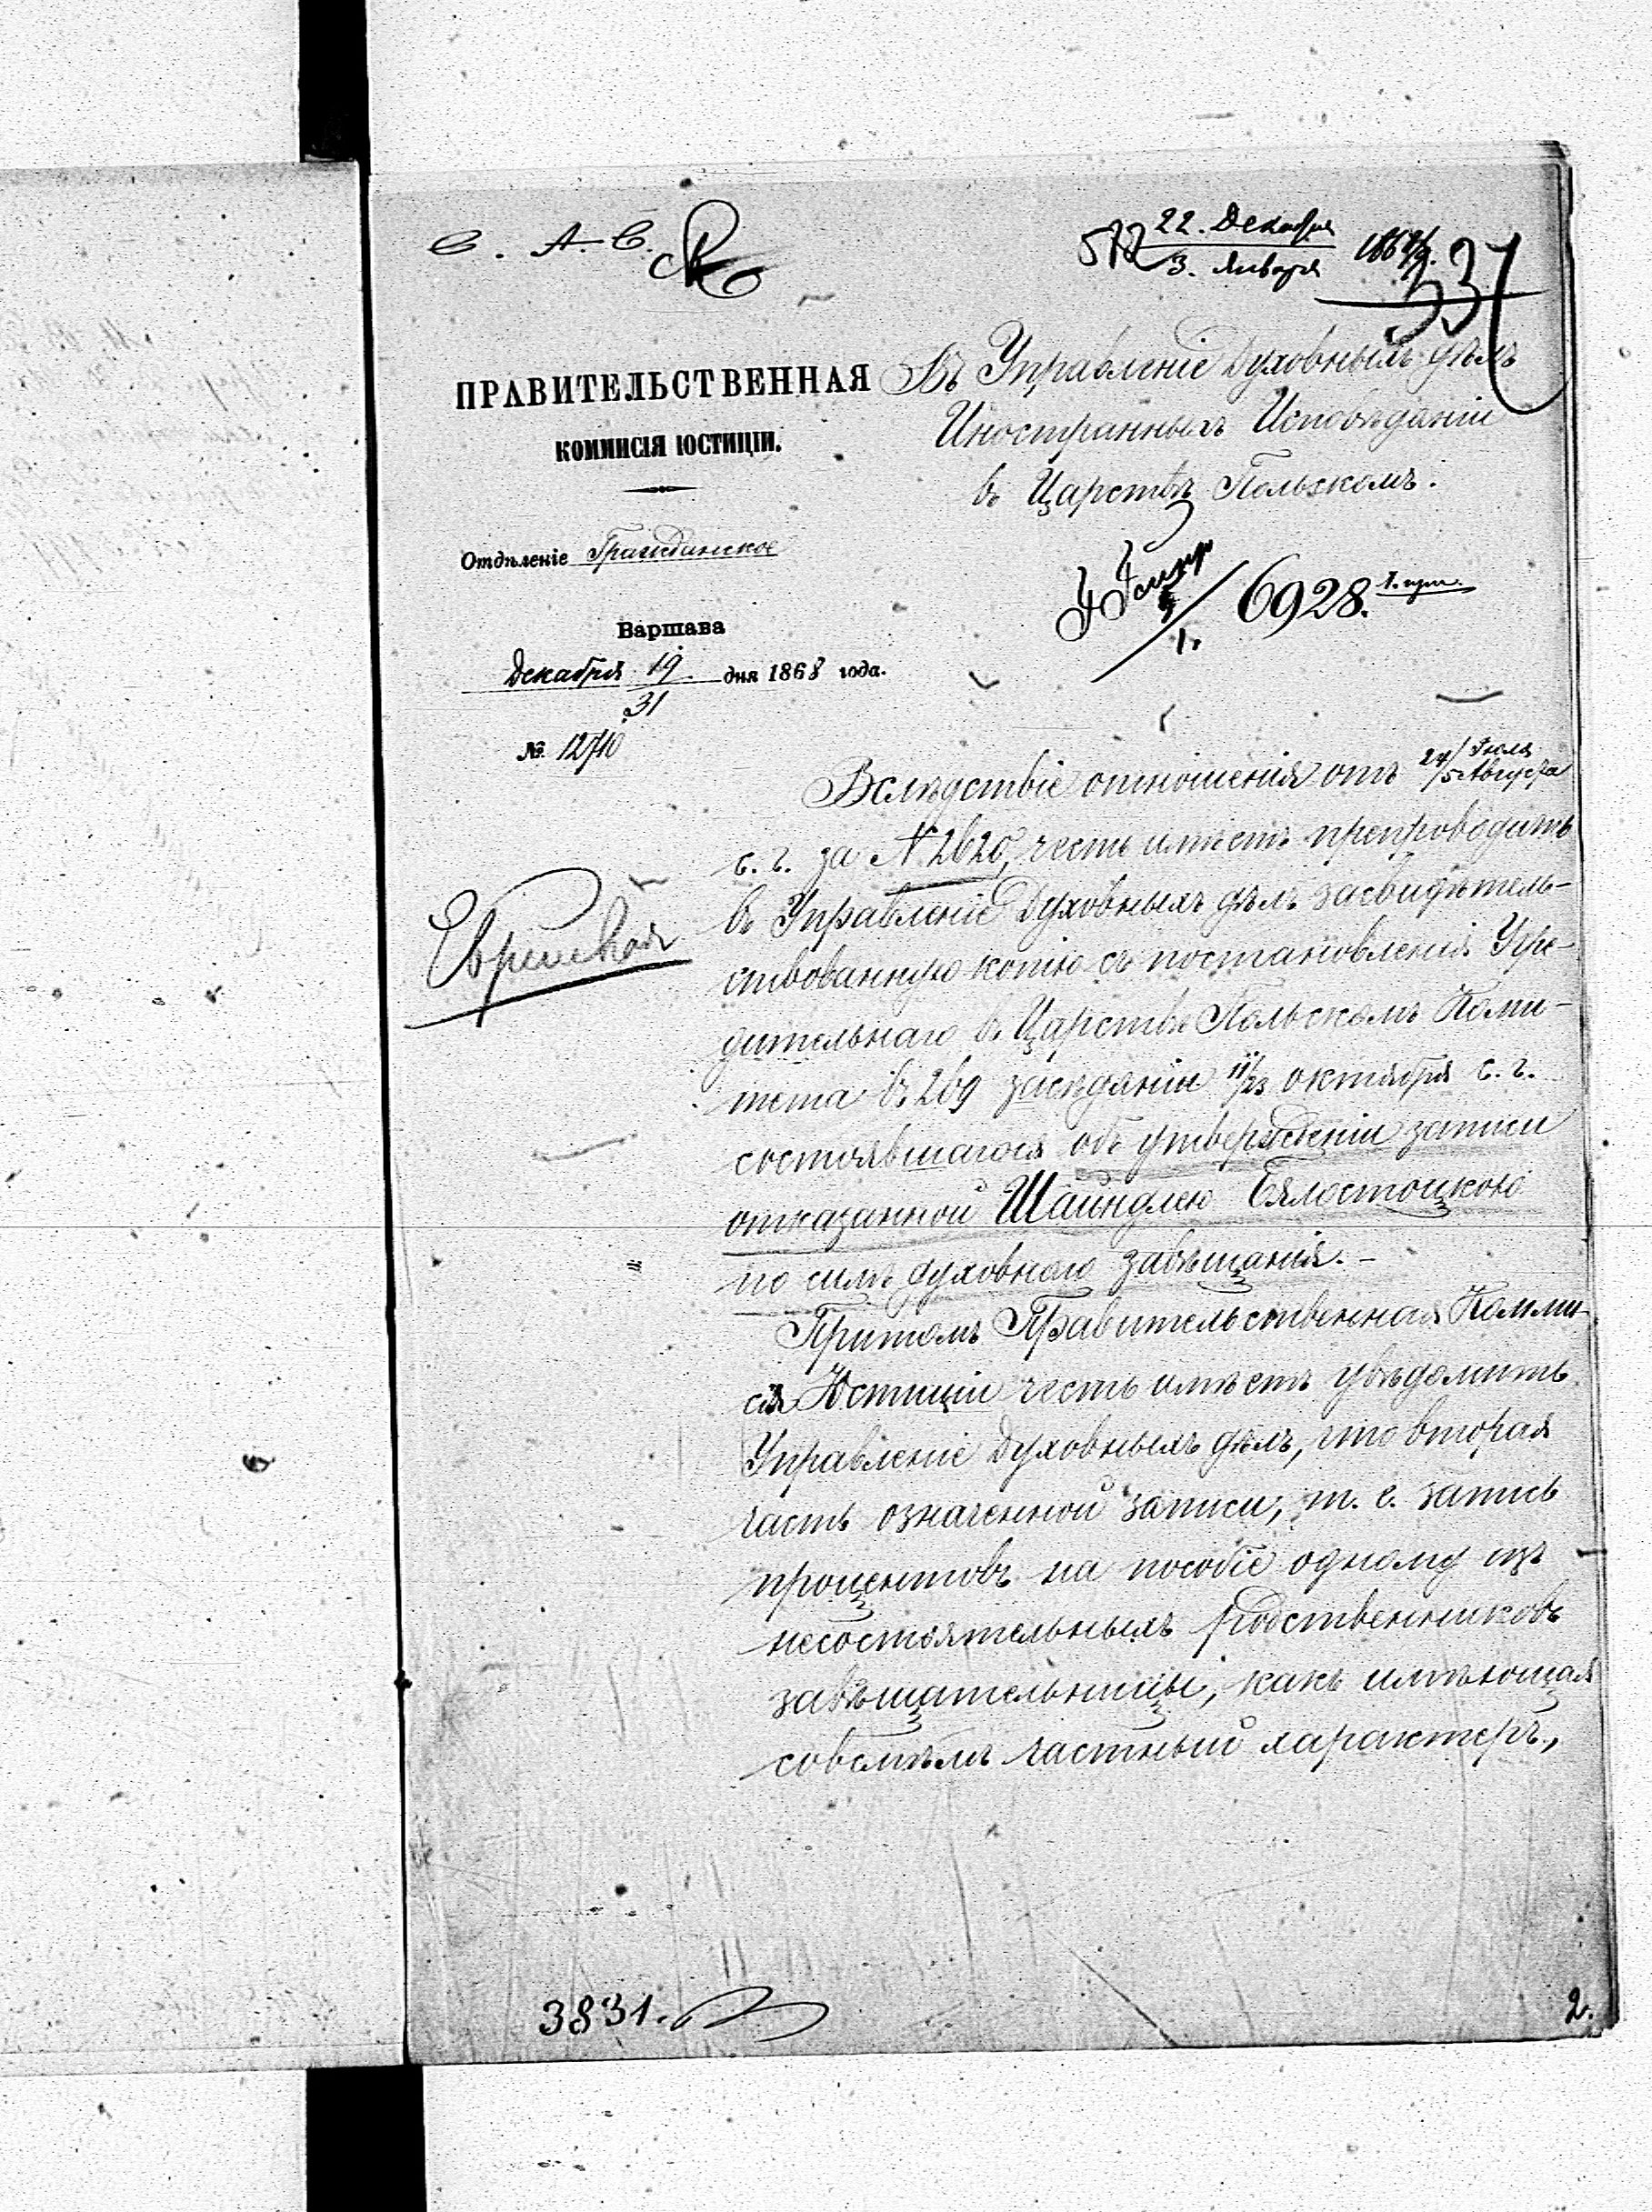 С. А. С.
572 22. Декабря 1868/9.
3. Января
337
ПРАВИТЕЛЬСТВЕННАЯ
КОММИСІЯ ЮСТИЦІИ.
Отдѣленіе Гражданское
Варшава
Декабря 19/31 дня 1868 года.
№ 12710
Въ Управленіе Духовныхъ дѣлъ
Иностранныхъ Исповѣданій
въ Царствѣ Польскомъ.
6928.
Еврейская
Вслѣдствіе отношенія отъ 24 Іюля/5 Августа
с. г. за № 2620, честь имѣетъ препроводить
въ Управленіе Духовныхъ дѣлъ засвидѣтель-
ствованную копію съ постановленія Учре-
дительнаго въ Царствѣ Польскомъ Коми-
тета въ 269 засѣданіи 11/23 октября с. г.
состоявшагося объ утвержденіи записи
отказанной Шайндлею Бялостоцкою
по силѣ духовнаго завѣщанія. –
Притомъ Правительственная Комми-
сія Юстиціи честь имѣетъ увѣдомить
Управленіе Духовныхъ дѣлъ, что вторая
часть означенной записи, т. е. запись
процентовъ на пособіе одному изъ
несостоятельныхъ родственниковъ
завѣщательницы, какъ имѣющая
совсѣмъ частный характеръ,
3831.
2.